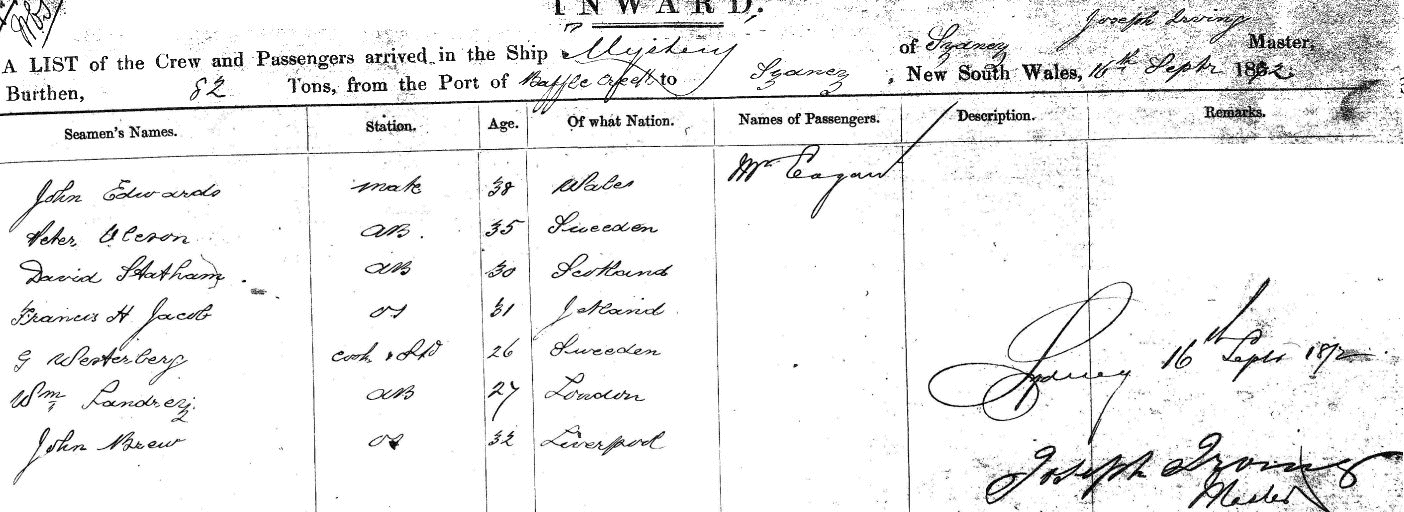 INWARD.
A LIST of the Crew and Passengers arrived in the Ship Mystery of Sydney Joseph Irving Master,
Burthen, 82 Tons, from the Port of Baffle Creek to Sydney, New South Wales, 16th Septr 1872.
Seamen's Names. Station. Age. Of what Nation. Names of Passengers. Description. Remarks.
John Edwards mate 38 Wales Mr Eagan
Peter Oleson AB. 35 Sweeden
David Statham. AB 30 Scotland
Francis H Jacob OS 31
G Westerberg cook & Std 26 Sweeden
Sydney 16th Septr 1872
Wm AB 27 London
John Brew OS 32 Liverpool
Joseph Irving
Master